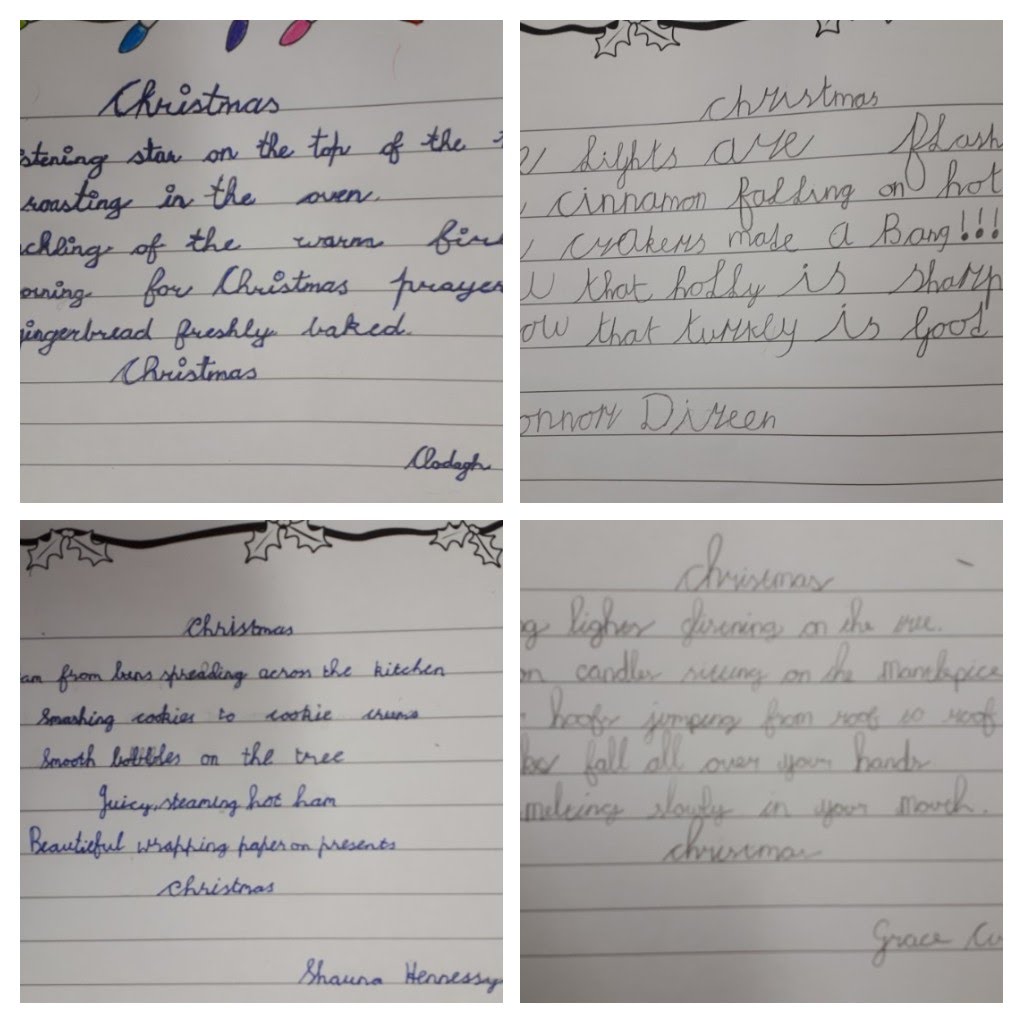 Christmas
stening star on the top of the
roasting in the oven.
ckling of the warm fire
oning for Christmas prayer
ingerbread freshly baked.
Christmas
Clodagh
christmas
lights are flash
cinnamon falling on hot
crakers made a Bang!!!
that holly is sharp
ow that turkey is good
onnor Direen
Christmas
am from buns spreading across the kitchen
Smashing cookies to cookie crums
Smooth bobbles on the tree
Juicy, steaming hot ham
Beautieful wrapping paper on presents
christmas
Shauna Hennessy
christmas
on the tree.
on candles sitting on the
hoofs jumping from roof to roof
fall all over your hands
melting slowly in your mouth.
christmas
Grace